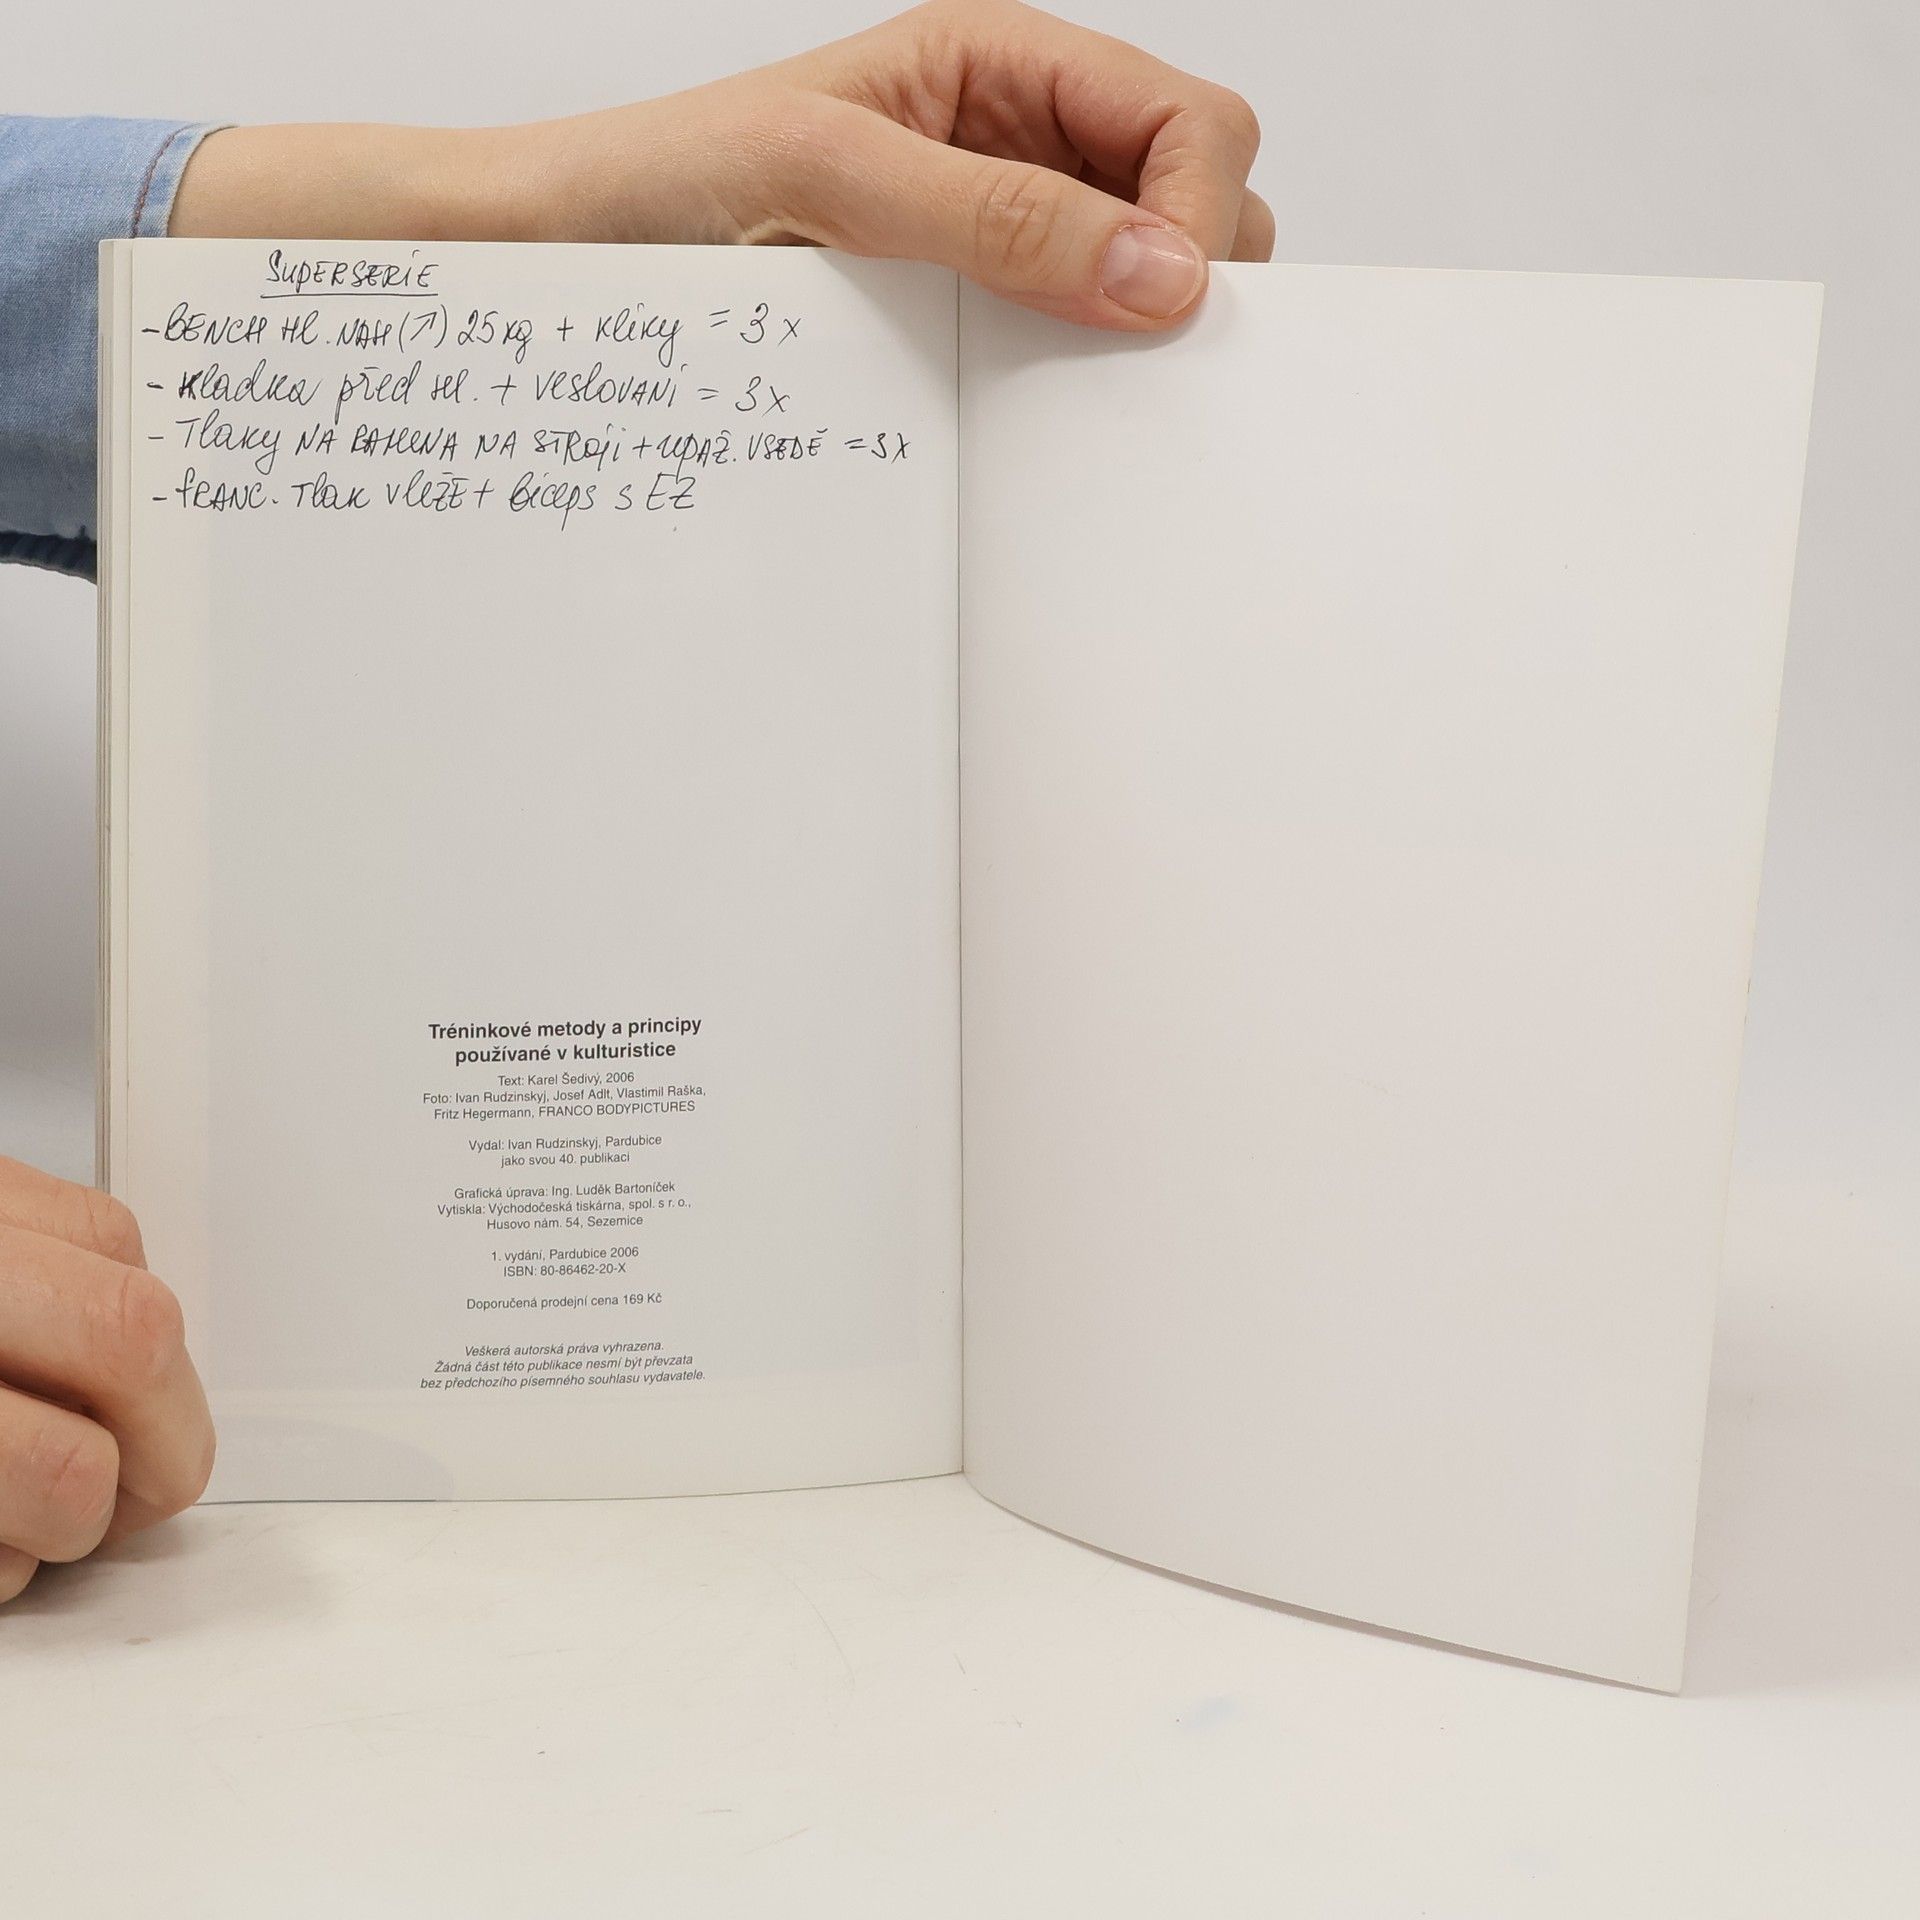 SUPERSERIE
- BENCH Hl. NAH (↗) 25 kg + kliky = 3 x
- kladka před Hl. + VeslovANí = 3 x
- Tlaky NA RAMENA NA STROJi + UPAŽ. VSEDĚ = 3 X
- fRANC. Tlak VležE + biceps s EZ
Tréninkové metody a principy
používané v kulturistice
Text: Karel Šedivý, 2006
Foto: Ivan Rudzinskyj, Josef Adlt, Vlastimil Raška,
Fritz Hegermann, FRANCO BODYPICTURES
Vydal: Ivan Rudzinskyj, Pardubice
jako svou 40. publikaci
Grafická úprava: Ing. Luděk Bartoníček
Vytiskla: Východočeská tiskárna, spol. s r. o.,
Husovo nám. 54, Sezemice
1. vydání, Pardubice 2006
ISBN: 80-86462-20-X
Doporučená prodejní cena 169 Kč
Veškerá autorská práva vyhrazena.
Žádná část této publikace nesmí být převzata
bez předchozího písemného souhlasu vydavatele.